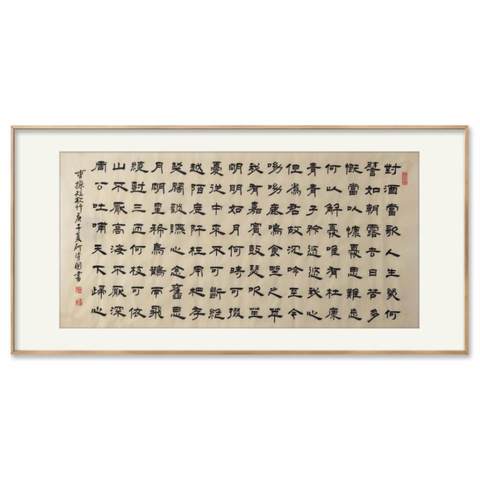 對酒當歌人生幾何
譬如朝露去日苦多
慨當以慷憂思難忘
何以解憂唯有杜康
青青子衿悠悠我心
但為君故沉吟至今
呦呦鹿鳴食野之苹
我有嘉賓鼓瑟吹笙
明明如月何時可掇
憂從中來不可斷絕
越陌度阡枉用相存
契闊談讌心念舊恩
月明星稀烏鵲南飛
繞樹三匝何枝可依
山不厭高海不厭深
周公吐哺天下歸心
曹操短歌行庚子夏書